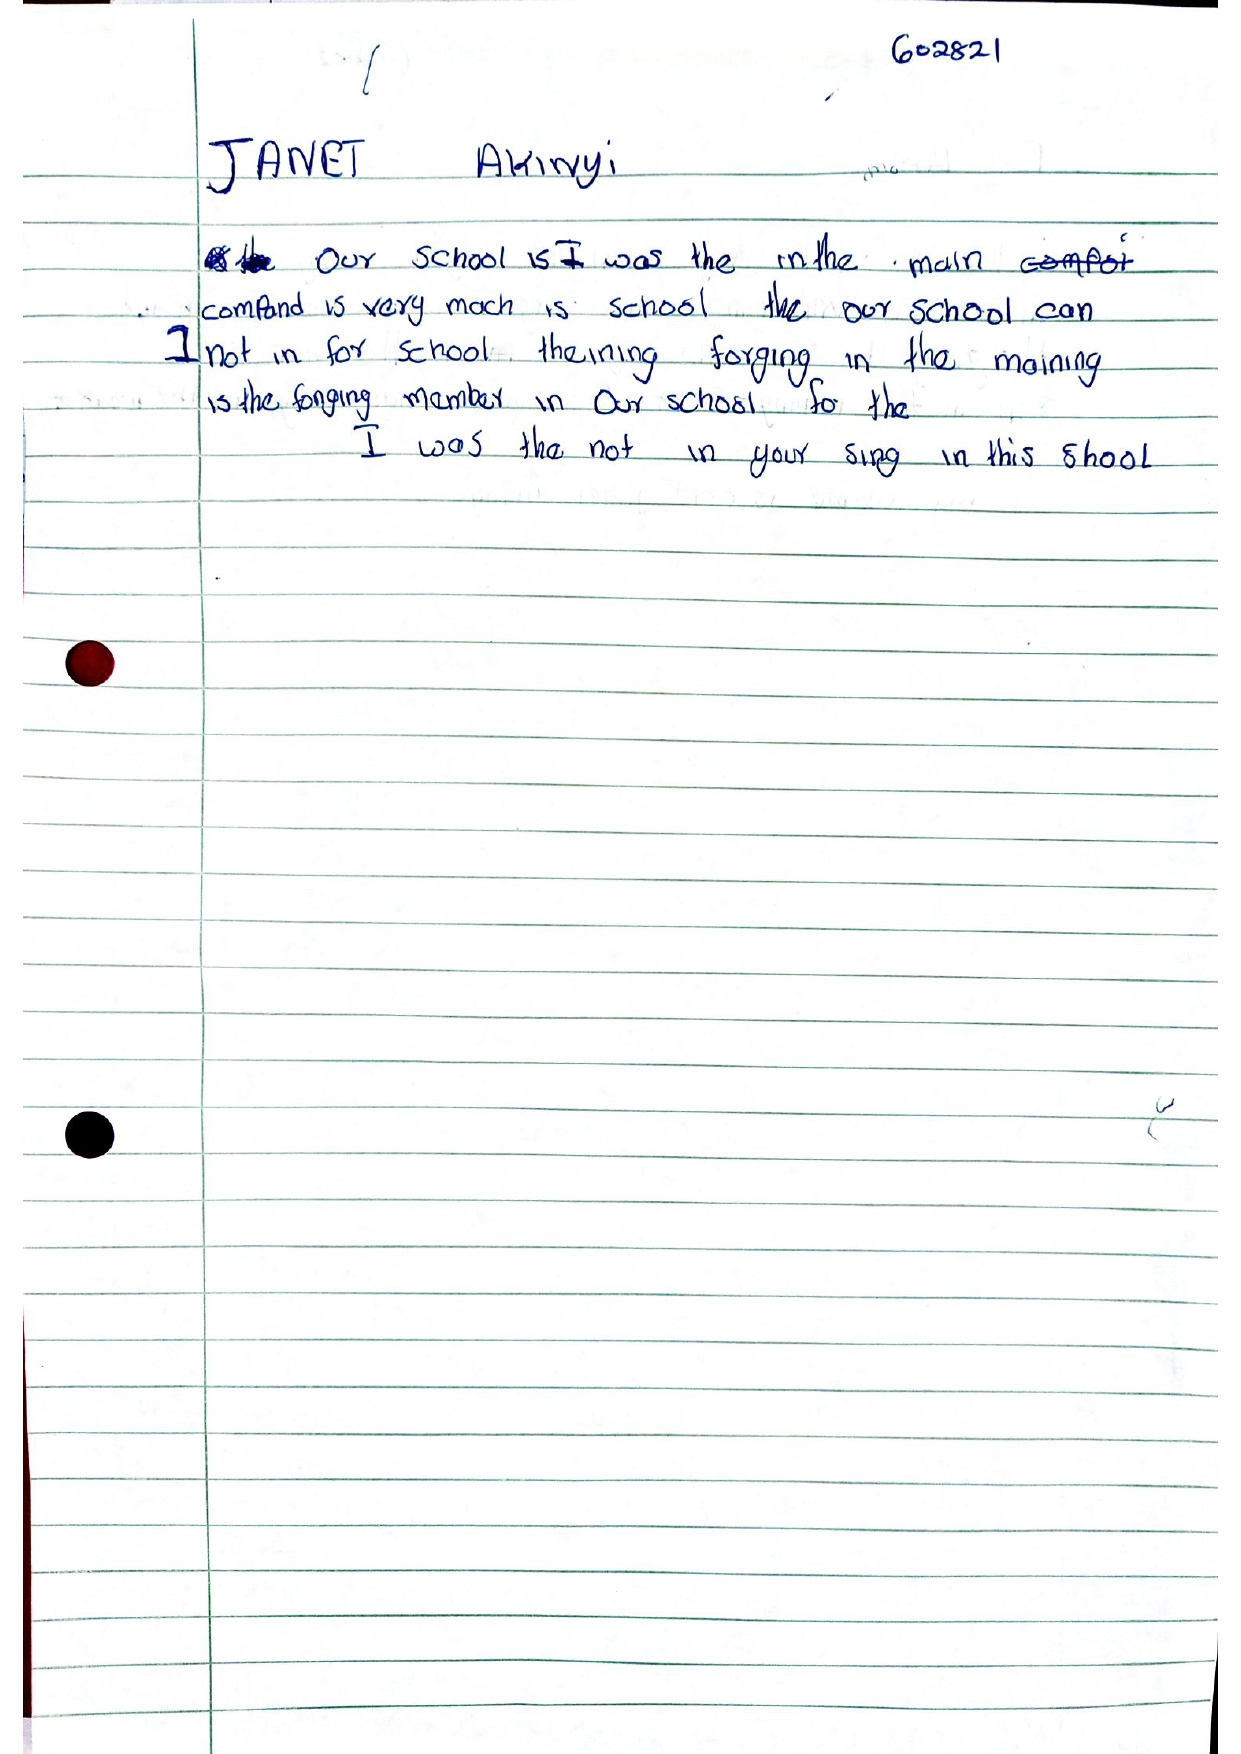 602821
JANET Akinyi
Our school is I was the in the main compot
compand is very mach is school the our school can
I not in for school theining forging in the maining
is the fonging member in Our school fo the
I was the not in your sing in this shool